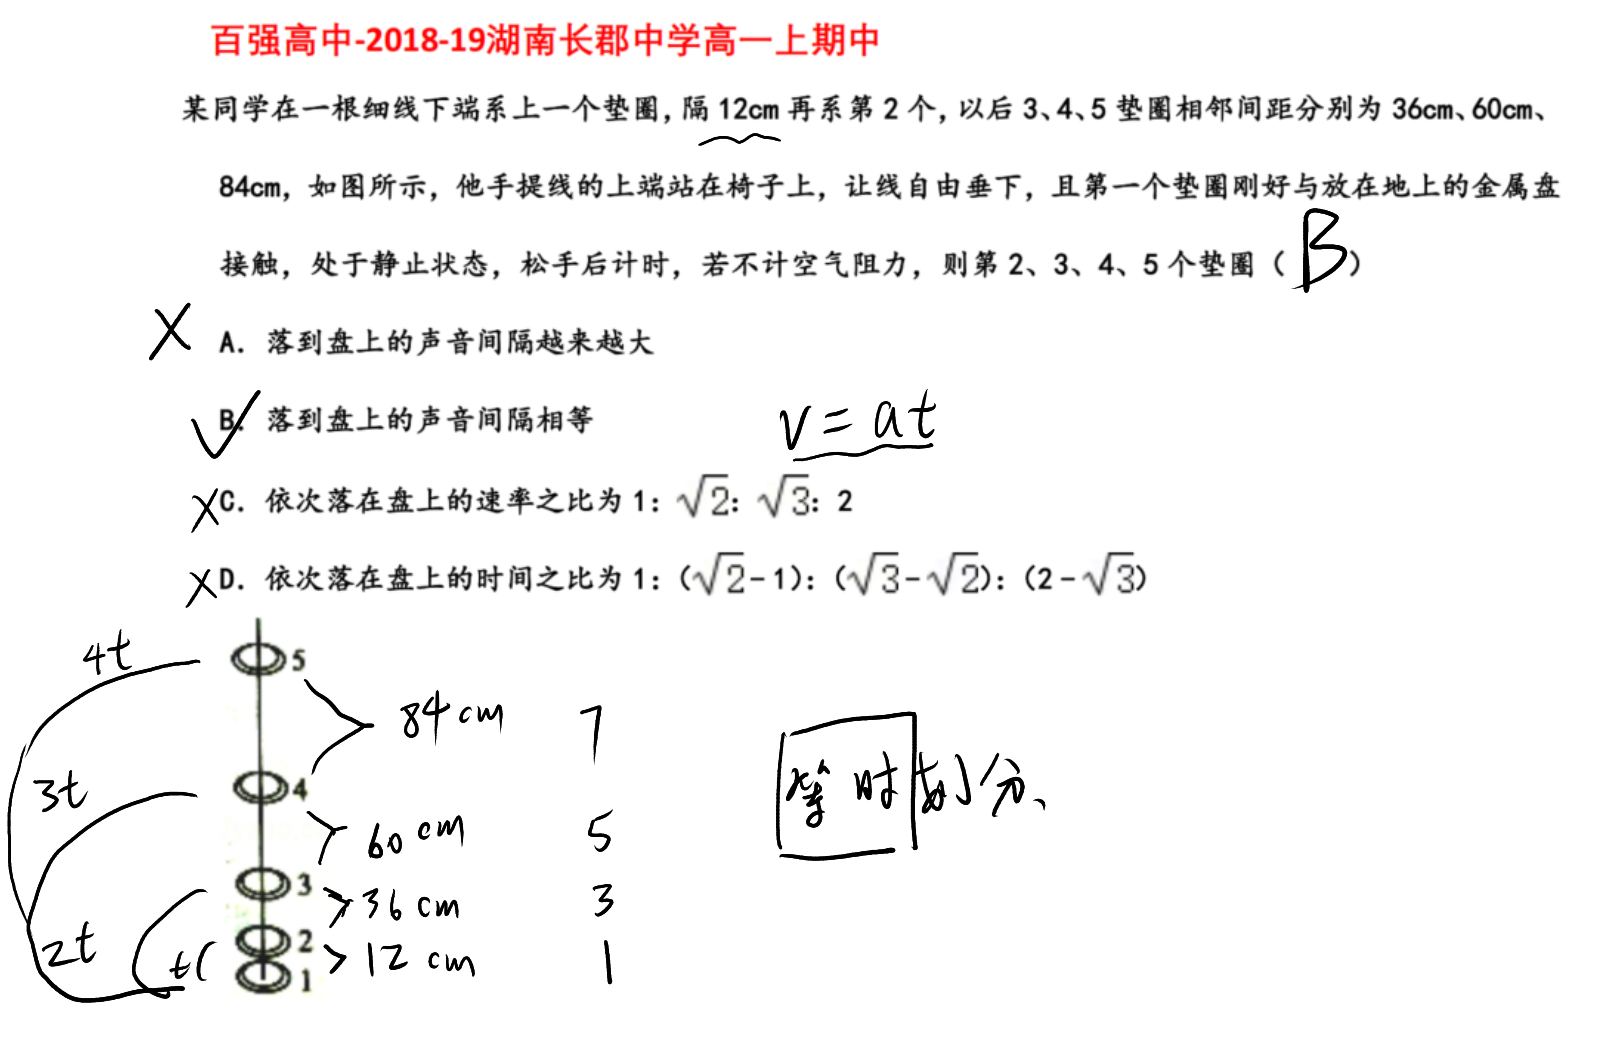 百强高中-2018-19湖南长郡中学高一上期中
某同学在一根细线下端系上一个垫圈,隔12cm再系第2个,以后3、4、5垫圈相邻间距分别为36cm、60cm、
84cm，如图所示，他手提线的上端站在椅子上，让线自由垂下，且第一个垫圈刚好与放在地上的金属盘
接触，处于静止状态，松手后计时，若不计空气阻力，则第2、3、4、5个垫圈（ B ）
X A. 落到盘上的声音间隔越来越大
✓ B. 落到盘上的声音间隔相等
v = at
X C. 依次落在盘上的速率之比为1：√2：√3：2
X D. 依次落在盘上的时间之比为1：(√2-1)：(√3-√2)：(2-√3)
4t 5
84cm 7
3t 4
等时划分、
60cm 5
3
36cm 3
2t t 2
12cm 1
1